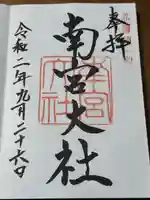 奉拝
南宮大社
令和二年九月二十六日